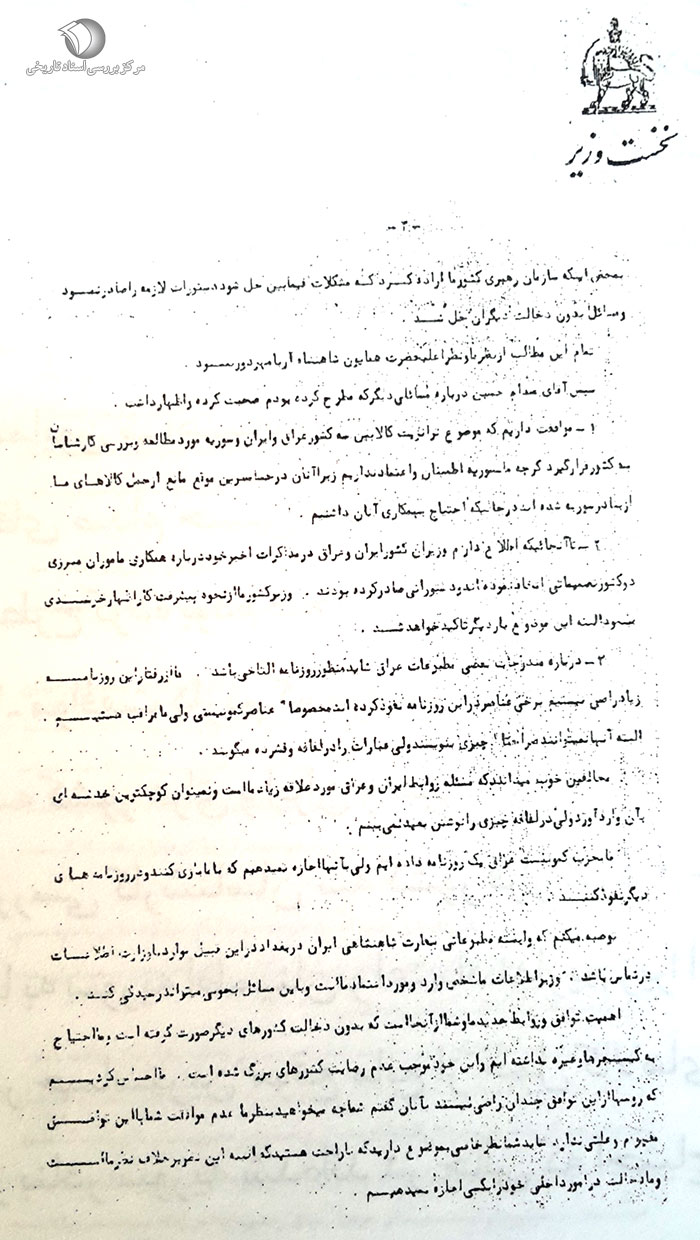 مرکز بررسی اسناد تاریخی
نخست وزیر
- ۳ -
بمحض اینکه سازمان رهبری کشور ما اراده کرد که مشکلات فیمابین حل شود دستورات لازمه را صادر نمود
ومسائل بدون دخالت دیگران حل شد .
تمام این مطالب از نظر ما و نظر اعلیحضرت همایون شاهنشاه آریامهر دور نبود .
سپس آقای صدام حسین درباره مسائلی دیگر که مطرح کرده بودم صحبت کرده واظهار داشت .
۱ - موافقت داریم که موضوع ترانزیت کالا بین سه کشور عراق وایران وسوریه مورد مطالعه وبررسی کارشناسان
سه کشور قرار گیرد گرچه ما بسوریه اطمینان واعتماد نداریم زیرا آنان در حساسترین موقع مانع از حمل کالاهای ما
از بنادر سوریه شده اند در حالیکه احتیاج بهمکاری آنان داشتیم .
۲ - تا آنجائیکه اطلاع دارم وزیران کشور ایران وعراق در مذاکرات اخیر خود درباره همکاری ماموران مرزی
دو کشور تصمیماتی اتخاذ نموده اند ودستوراتی صادر کرده بودند . وزیر کشور ما از نحوه پیشرفت کار اظهار خرسندی
نمود البته این موضوع بار دیگر تاکید خواهد شد .
۳ - درباره مندرجات بعضی مطبوعات عراق شاید منظور روزنامه التاخی باشد . ما از رفتار این روزنامه
زیاد راضی نیستیم برخی عناصر در این روزنامه نفوذ کرده اند مخصوصا" عناصر کمونیستی ولی ما مراقب هستیم .
البته آنها نمیتوانند صراحتا" چیزی بنویسند ولی عبارات را در لفافه وفشرده میگویند .
مخالفین خوب میدانند که مسئله روابط ایران وعراق مورد علاقه زیاد ما است ونمیتوان کوچکترین خدشه ای
بآن وارد آورد ولی در لفافه چیزی را نوشتن بعید نمی بینم .
ما بحزب کمونیست عراق یک روزنامه داده ایم ولی بآنها اجازه نمیدهیم که با ما بازی کنند ودر روزنامه های
دیگر نفوذ کنند .
توصیه میکنم که وابسته مطبوعاتی سفارت شاهنشاهی ایران در بغداد در این قبیل موارد با وزارت اطلاعات
در تماس باشد . وزیر اطلاعات ما شخص وارد ومورد اعتماد ما است وباین مسائل بخوبی میتواند رسیدگی کند .
اهمیت توافق وروابط جدید ما وشما از آنجا است که بدون دخالت کشورهای دیگر صورت گرفته است وما احتیاج
به کیسینجرها وغیره نداشته ایم واین خود موجب عدم رضایت کشورهای بزرگ شده است . ما احساس کردیم
که روسها از این توافق چندان راضی نیستند بآنان گفتم شما چه میخواهید بنظر ما عدم موافقت شما با این توافق
مفهوم وعلتی ندارد شاید شما نظر خاصی بموضوع دارید که ناراحت هستید که البته این نظر بر خلاف نظر ما است
وما دخالت در امور داخلی خود را بکسی اجازه نمیدهیم .